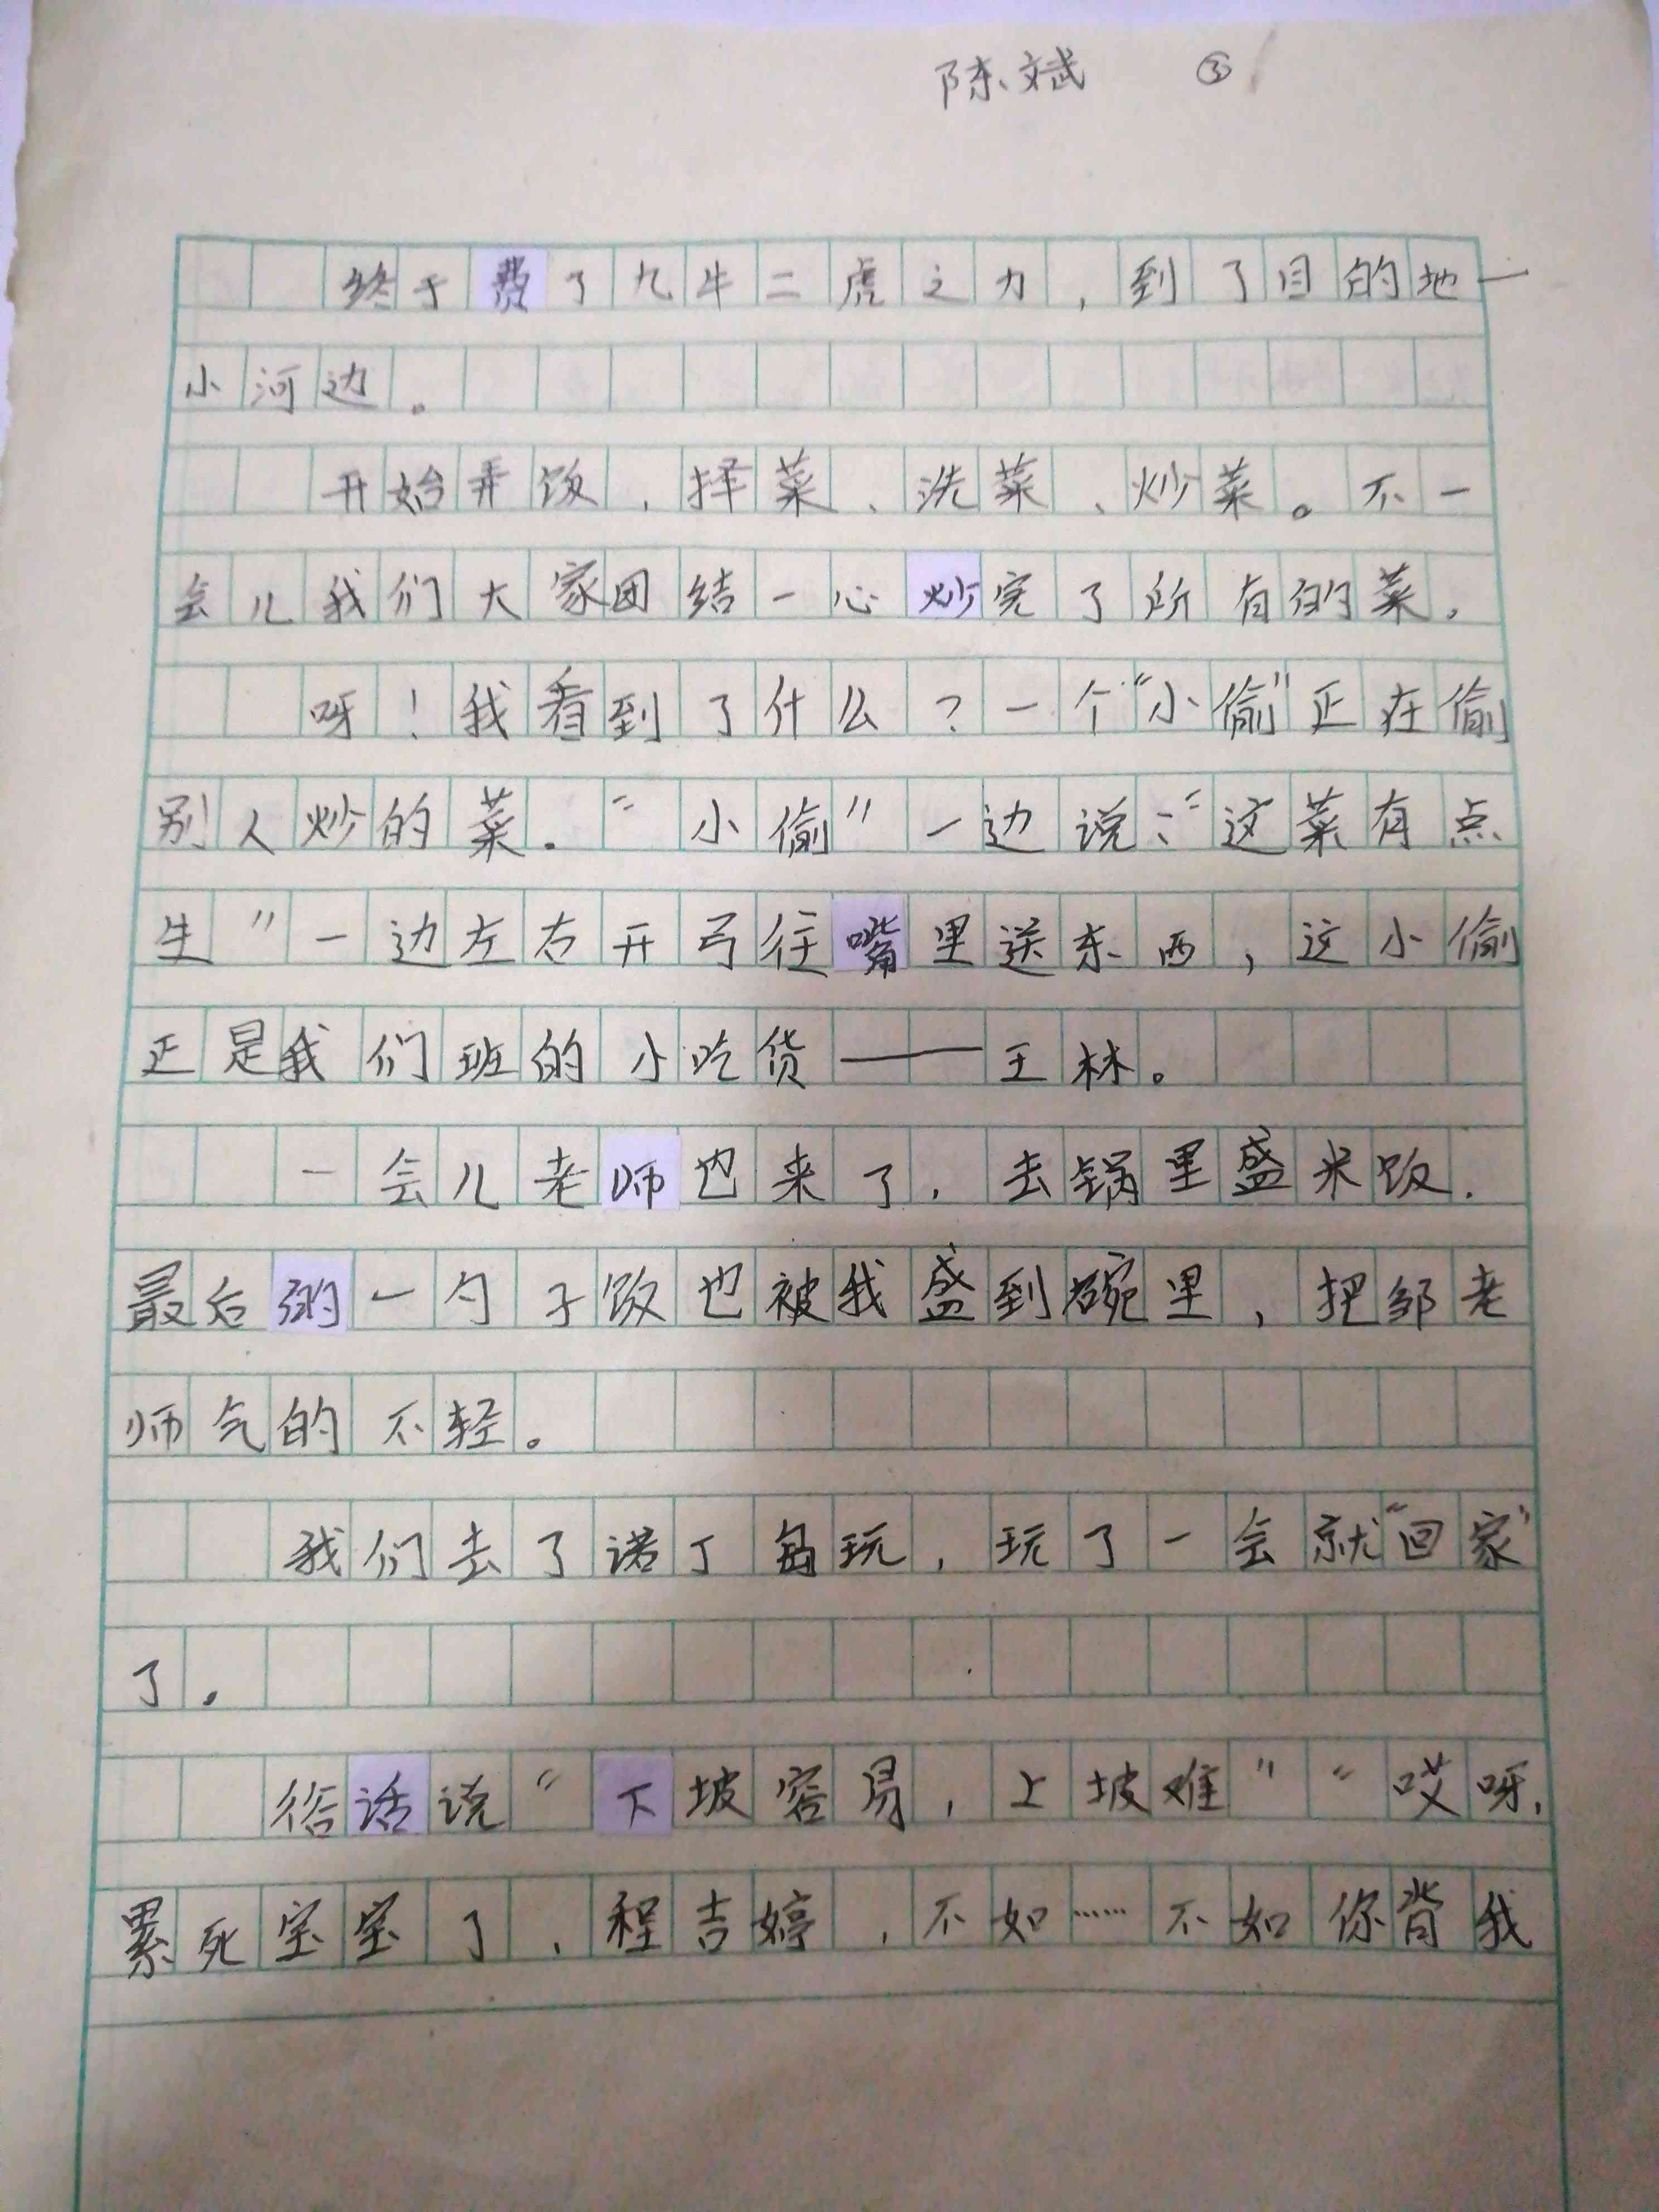 陈斌 ③
终于费了九牛二虎之力，到了目的地一
小河边。
开始弄饭，择菜、洗菜、炒菜。不一
会儿我们大家团结一心炒完了所有的菜。
呀！我看到了什么？一个“小偷”正在偷
别人炒的菜。“小偷”一边说：“这菜有点
生”一边左右开弓往嘴里送东西，这小偷
正是我们班的小吃货——王林。
一会儿老师也来了，去锅里盛米饭.
最后一勺子饭也被我盛到碗里，把邹老
师气的不轻。
我们去了诺丁玩，玩了一会就“回家”
了。
俗话说“下坡容易，上坡难”“哎呀，
累死宝宝了，程吉婷，不如……不如你背我